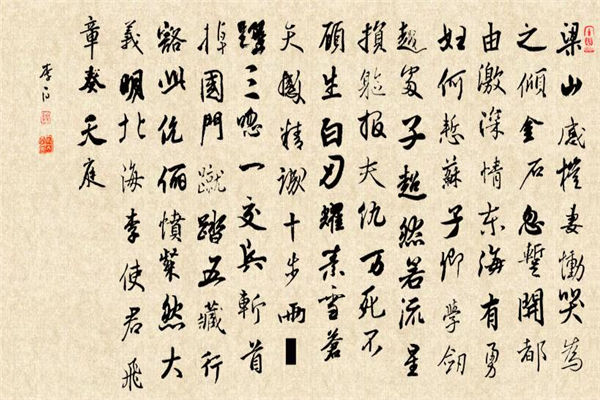 梁山感妻慟哭為
之傾金石忽暫開都
由激深情東海有勇
妇何慙蘇子卿學劒
越處子超然若流星
損軀報夫仇万死不
顧生白刃耀素雪蒼
天感精誠十步兩
躍三一交兵斬首
掉國門蹴踏五藏行
豁此伉儷憤粲然大
義明北海李使君飛
章奏天庭
李白